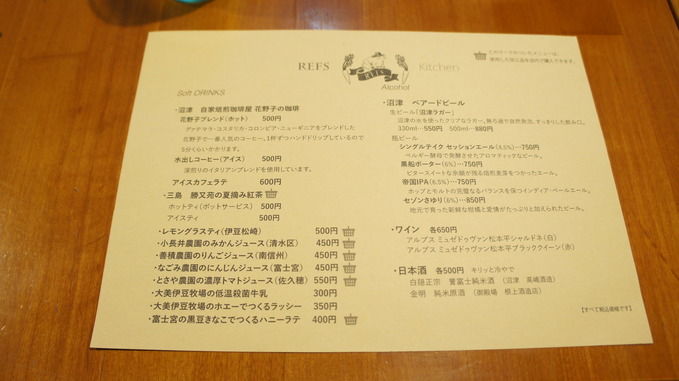 REFS
REFS
Kitchen
このマークのついたメニューは、
使用した加工品を店内で購入できます。
Soft DRINKS
・沼津 自家焙煎珈琲屋 花野子の珈琲
花野子ブレンド(ホット) 500円
グァテマラ・コスタリカ・コロンビア・ニューギニアをブレンドした
花野子で一番人気のコーヒー。1杯ずつハンドドリップしているので
5分くらいかかります。
水出しコーヒー(アイス) 500円
深煎りのイタリアンブレンドを使用しています。
アイスカフェラテ 600円
・三島 勝又苑の夏摘み紅茶
ホットティ(ポットサービス) 500円
アイスティ 500円
・レモングラスティ(伊豆松崎) 500円
・小長井農園のみかんジュース(清水区) 450円
・善積農園のりんごジュース(南信州) 450円
・なごみ農園のにんじんジュース(富士宮) 450円
・とさや農園の濃厚トマトジュース(佐久穂) 550円
・大美伊豆牧場の低温殺菌牛乳 300円
・大美伊豆牧場のホエーでつくるラッシー 350円
・富士宮の黒豆きなこでつくるハニーラテ 400円
Alcohol
・沼津 ベアードビール
生ビール「沼津ラガー」
沼津の水を使ったクリアなラガー。無ろ過り自然発泡、すっきりした飲み口。
330ml…550円 500ml…880円
瓶ビール
シングルテイク セッションエール(4.5%)…750円
ベルギー酵母で発酵させたアロマチックなビール。
黒船ポーター(6%)…750円
ビタースイートな余韻が残る焙煎麦芽をつかったエール。
帝国IPA(6.5%)…750円
ホップとモルトの完璧なるバランスを保つインディア・ペールエール。
セゾンさゆり(6%)…850円
地元で育った新鮮な柑橘と愛情がたっぷりと加えられたビール。
・ワイン 各650円
アルプス ミュゼドゥヴァン松本平シャルドネ(白)
アルプス ミュゼドゥヴァン松本平ブラッククイーン(赤)
・日本酒 各500円 キリッと冷やで
白隠正宗 誉富士純米酒 (沼津 髙嶋酒造)
金明 純米原酒 (御殿場 根上酒造店)
【すべて税込価格です】